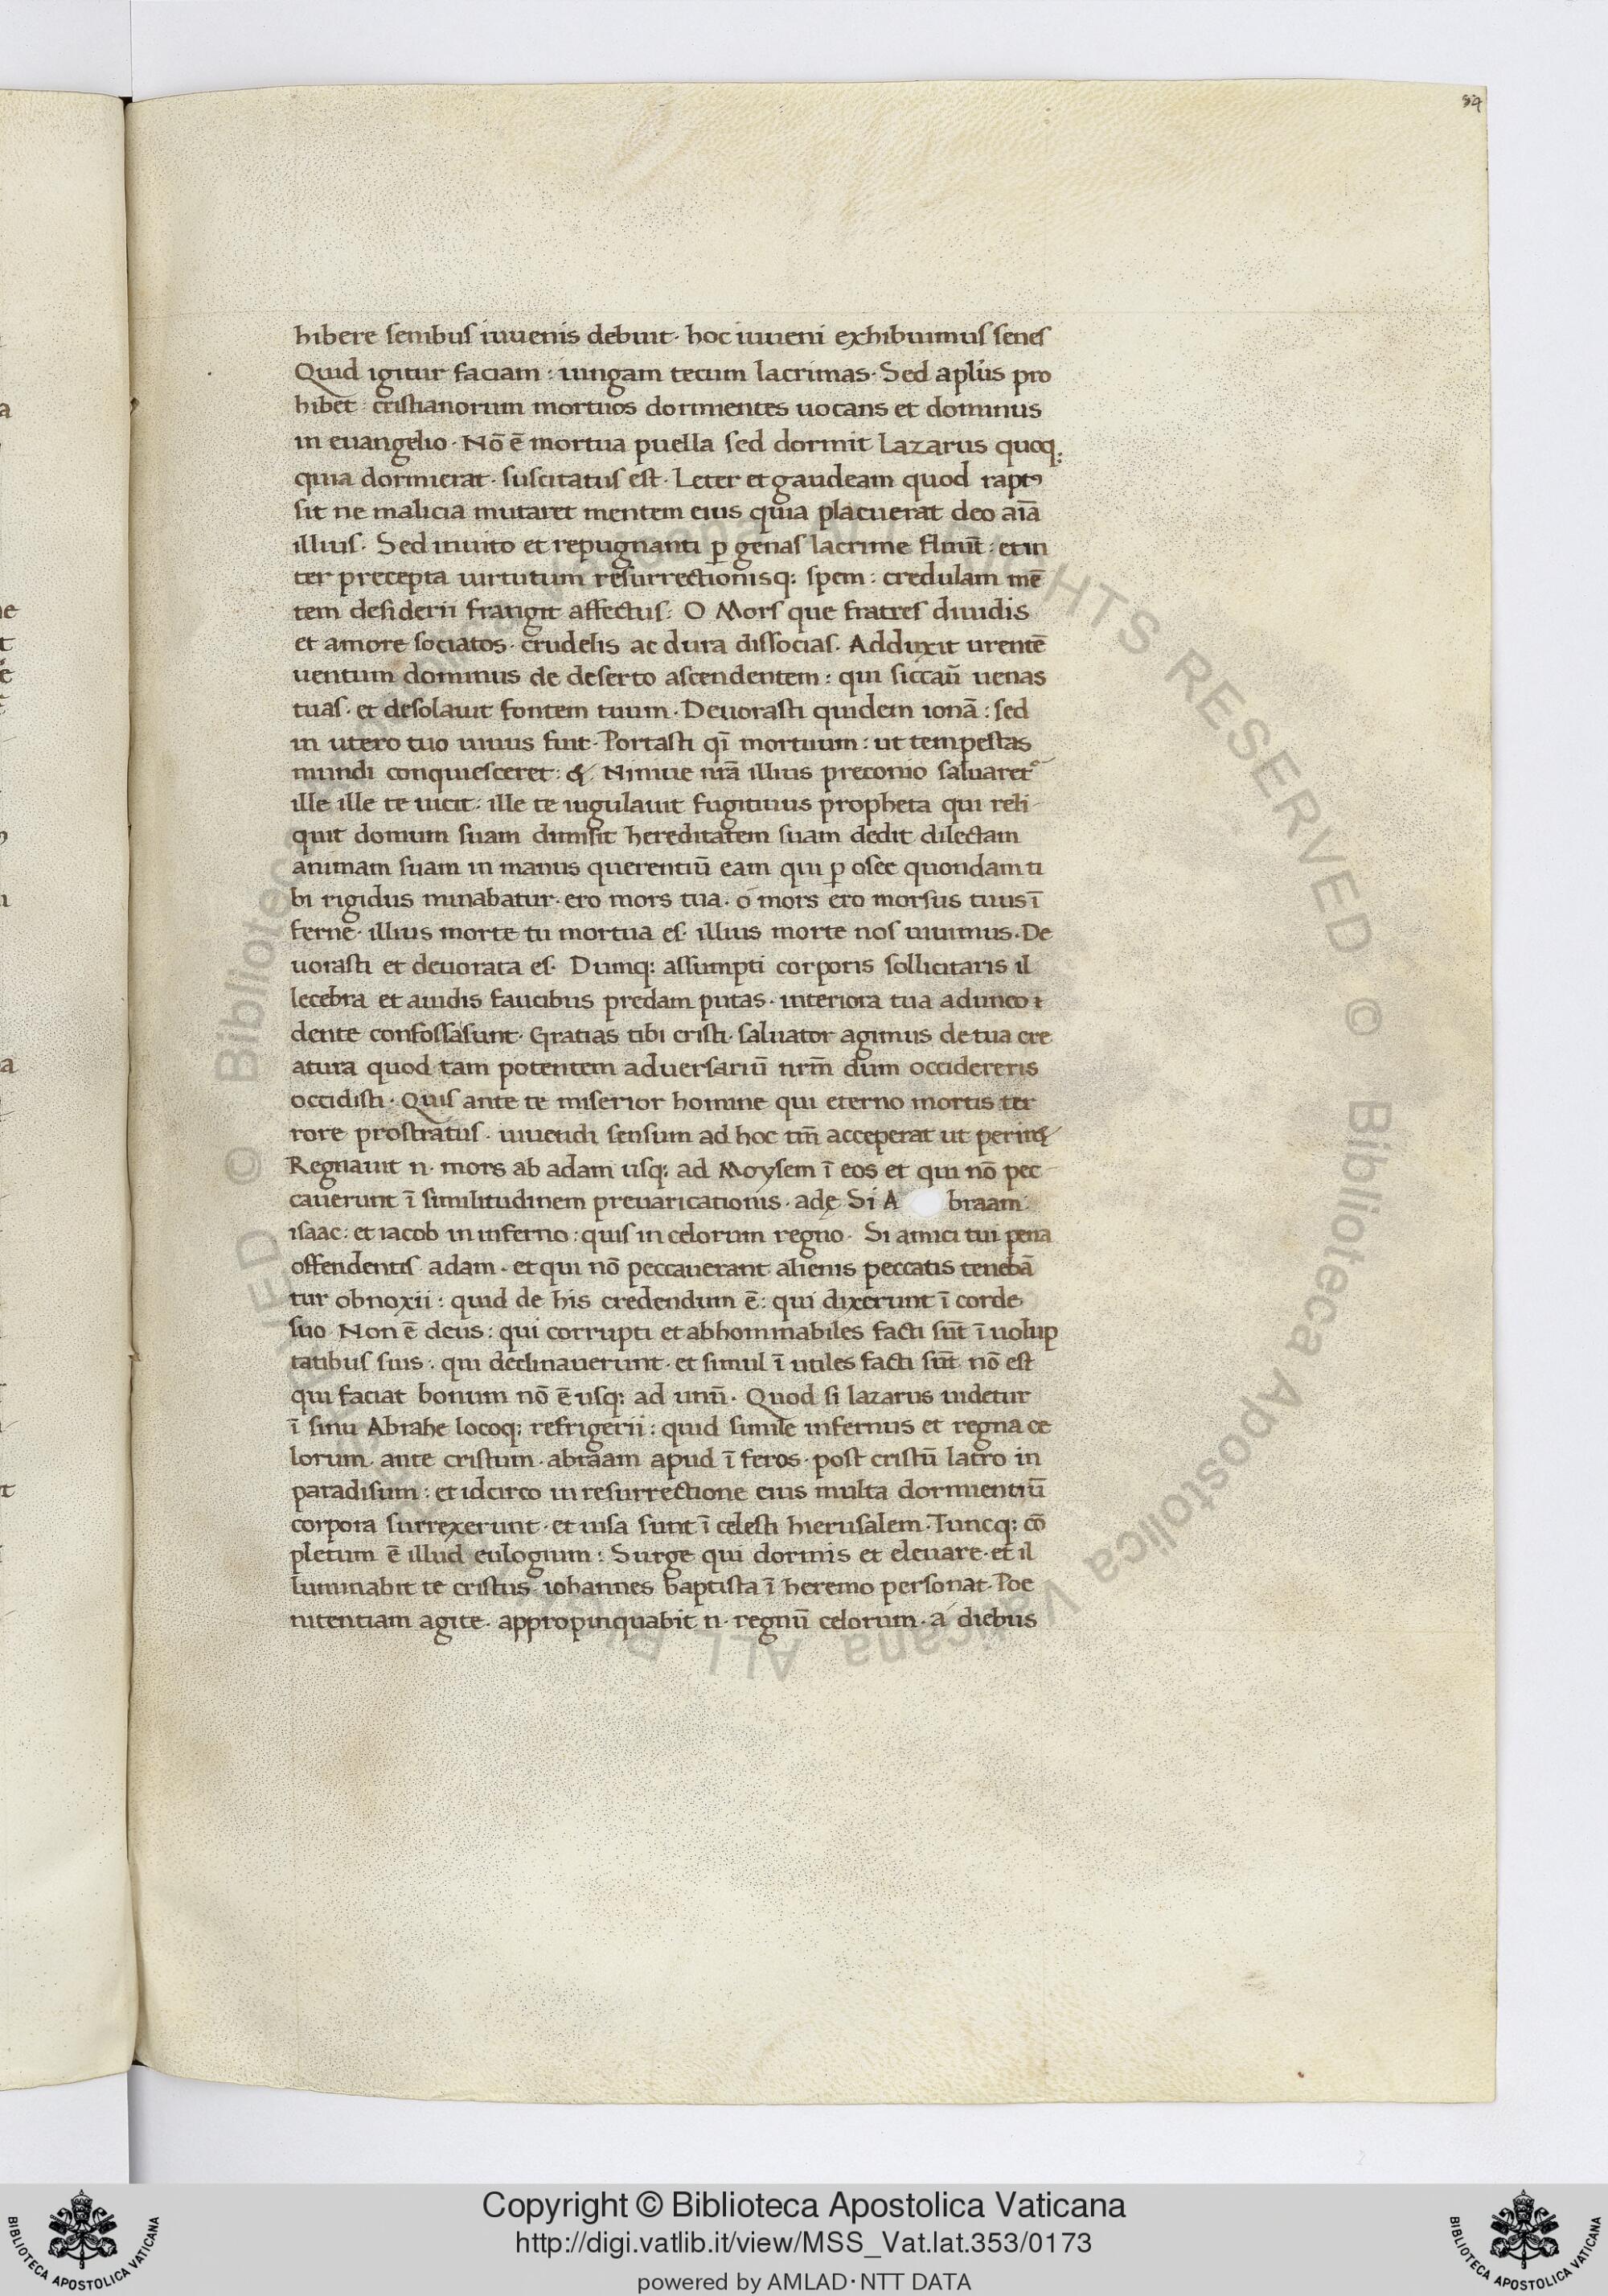 84
hibere senibus iuuenis debuit · hoc iuueni exhibuimus senes
Quid igitur faciam : iungam tecum lacrimas · Sed apl̄us pro
hibet : cristianorum mortuos dormientes uocans et dominus
in euangelio · Nō ē mortua puella sed dormit Lazarus quoq;
quia dormierat · suscitatus est · Leter et gaudeam quod raptꝰ
sit ne malicia mutaret mentem eius quia placuerat deo aīā
illius · Sed inuito et repugnanti ꝑ genas lacrime fluūt : et in
ter precepta uirtutum resurrectionisq; spem : credulam mē
tem desiderii frangit affectus · O Mors que fratres diuidis
et amore sociatos · crudelis ac dura dissocias · Adduxit urentē
uentum dominus de deserto ascendentem : qui siccau̅ uenas
tuas · et desolauit fontem tuum · Deuorasti quidem ionā : sed
in utero tuo uiuus fuit · Portasti qī mortuum : ut tempestas
mundi conquiesceret : & Niniue nr̄ā illius preconio saluaret᷒
ille ille te uicit : ille te iugulauit fugitiuus propheta qui reli
quit domum suam dimisit hereditatem suam dedit dilectam
animam suam in manus querentiū eam qui ꝑ osee quondam ti
bi rigidus minabatur · ero mors tua · o mors ero morsus tuus ī
ferne · illius morte tu mortua es · illius morte nos uiuimus · De
uorasti et deuorata es · Dumq; assumpti corporis sollicitaris il
lecebra et auidis faucibus predam putas · interiora tua adunco
dente confossa sunt · Gratias tibi cristi · saluator agimus de tua cre
atura quod tam potentem aduersariū nr̄m dum occidereris
occidisti · Quis ante te miserior homine qui eterno mortis ter
rore prostratus · uiuendi sensum ad hoc tm̄ acceperat ut periret
Regnauit n · mors ab adam usq; ad Moysem ī eos et qui nō pec
cauerunt ī similitudinem preuaricationis · adę Si A braam
isaac : et iacob in inferno : quis in celorum regno · Si amici tui pena
offendentis adam · et qui nō peccauerant alienis peccatis tenebā
tur obnoxii : quid de his credendum ē : qui dixerunt ī corde
suo Non ē deus : qui corrupti et abhominabiles facti sūt ī uolup
tatibus suis · qui declinauerunt · et simul ī utiles facti sūt nō est
qui faciat bonum nō ē usq; ad unū · Quod si lazarus uidetur
ī sinu Abrahe locoq; refrigerii : quid simile infernus et regna ce
lorum · ante cristum · abraam apud ī feros · post cristū latro in
paradisum : et idcirco in resurrectione eius multa dormientiū
corpora surrexerunt · et uisa sunt ī celesti hierusalem · Tuncq; cō
pletum ē illud eulogium : Surge qui dormis et eleuare · et il
luminabit te cristus · iohannes baptista ī heremo personat · Poe
nitentiam agite · appropinquabit n · regnū celorum · a diebus
© Biblioteca Apostolica Vaticana ALL RIGHTS RESERVED
Copyright © Biblioteca Apostolica Vaticana
http://digi.vatlib.it/view/MSS_Vat.lat.353/0173
powered by AMLAD·NTT DATA
BIBLIOTECA APOSTOLICA VATICANA
BIBLIOTECA APOSTOLICA VATICANA